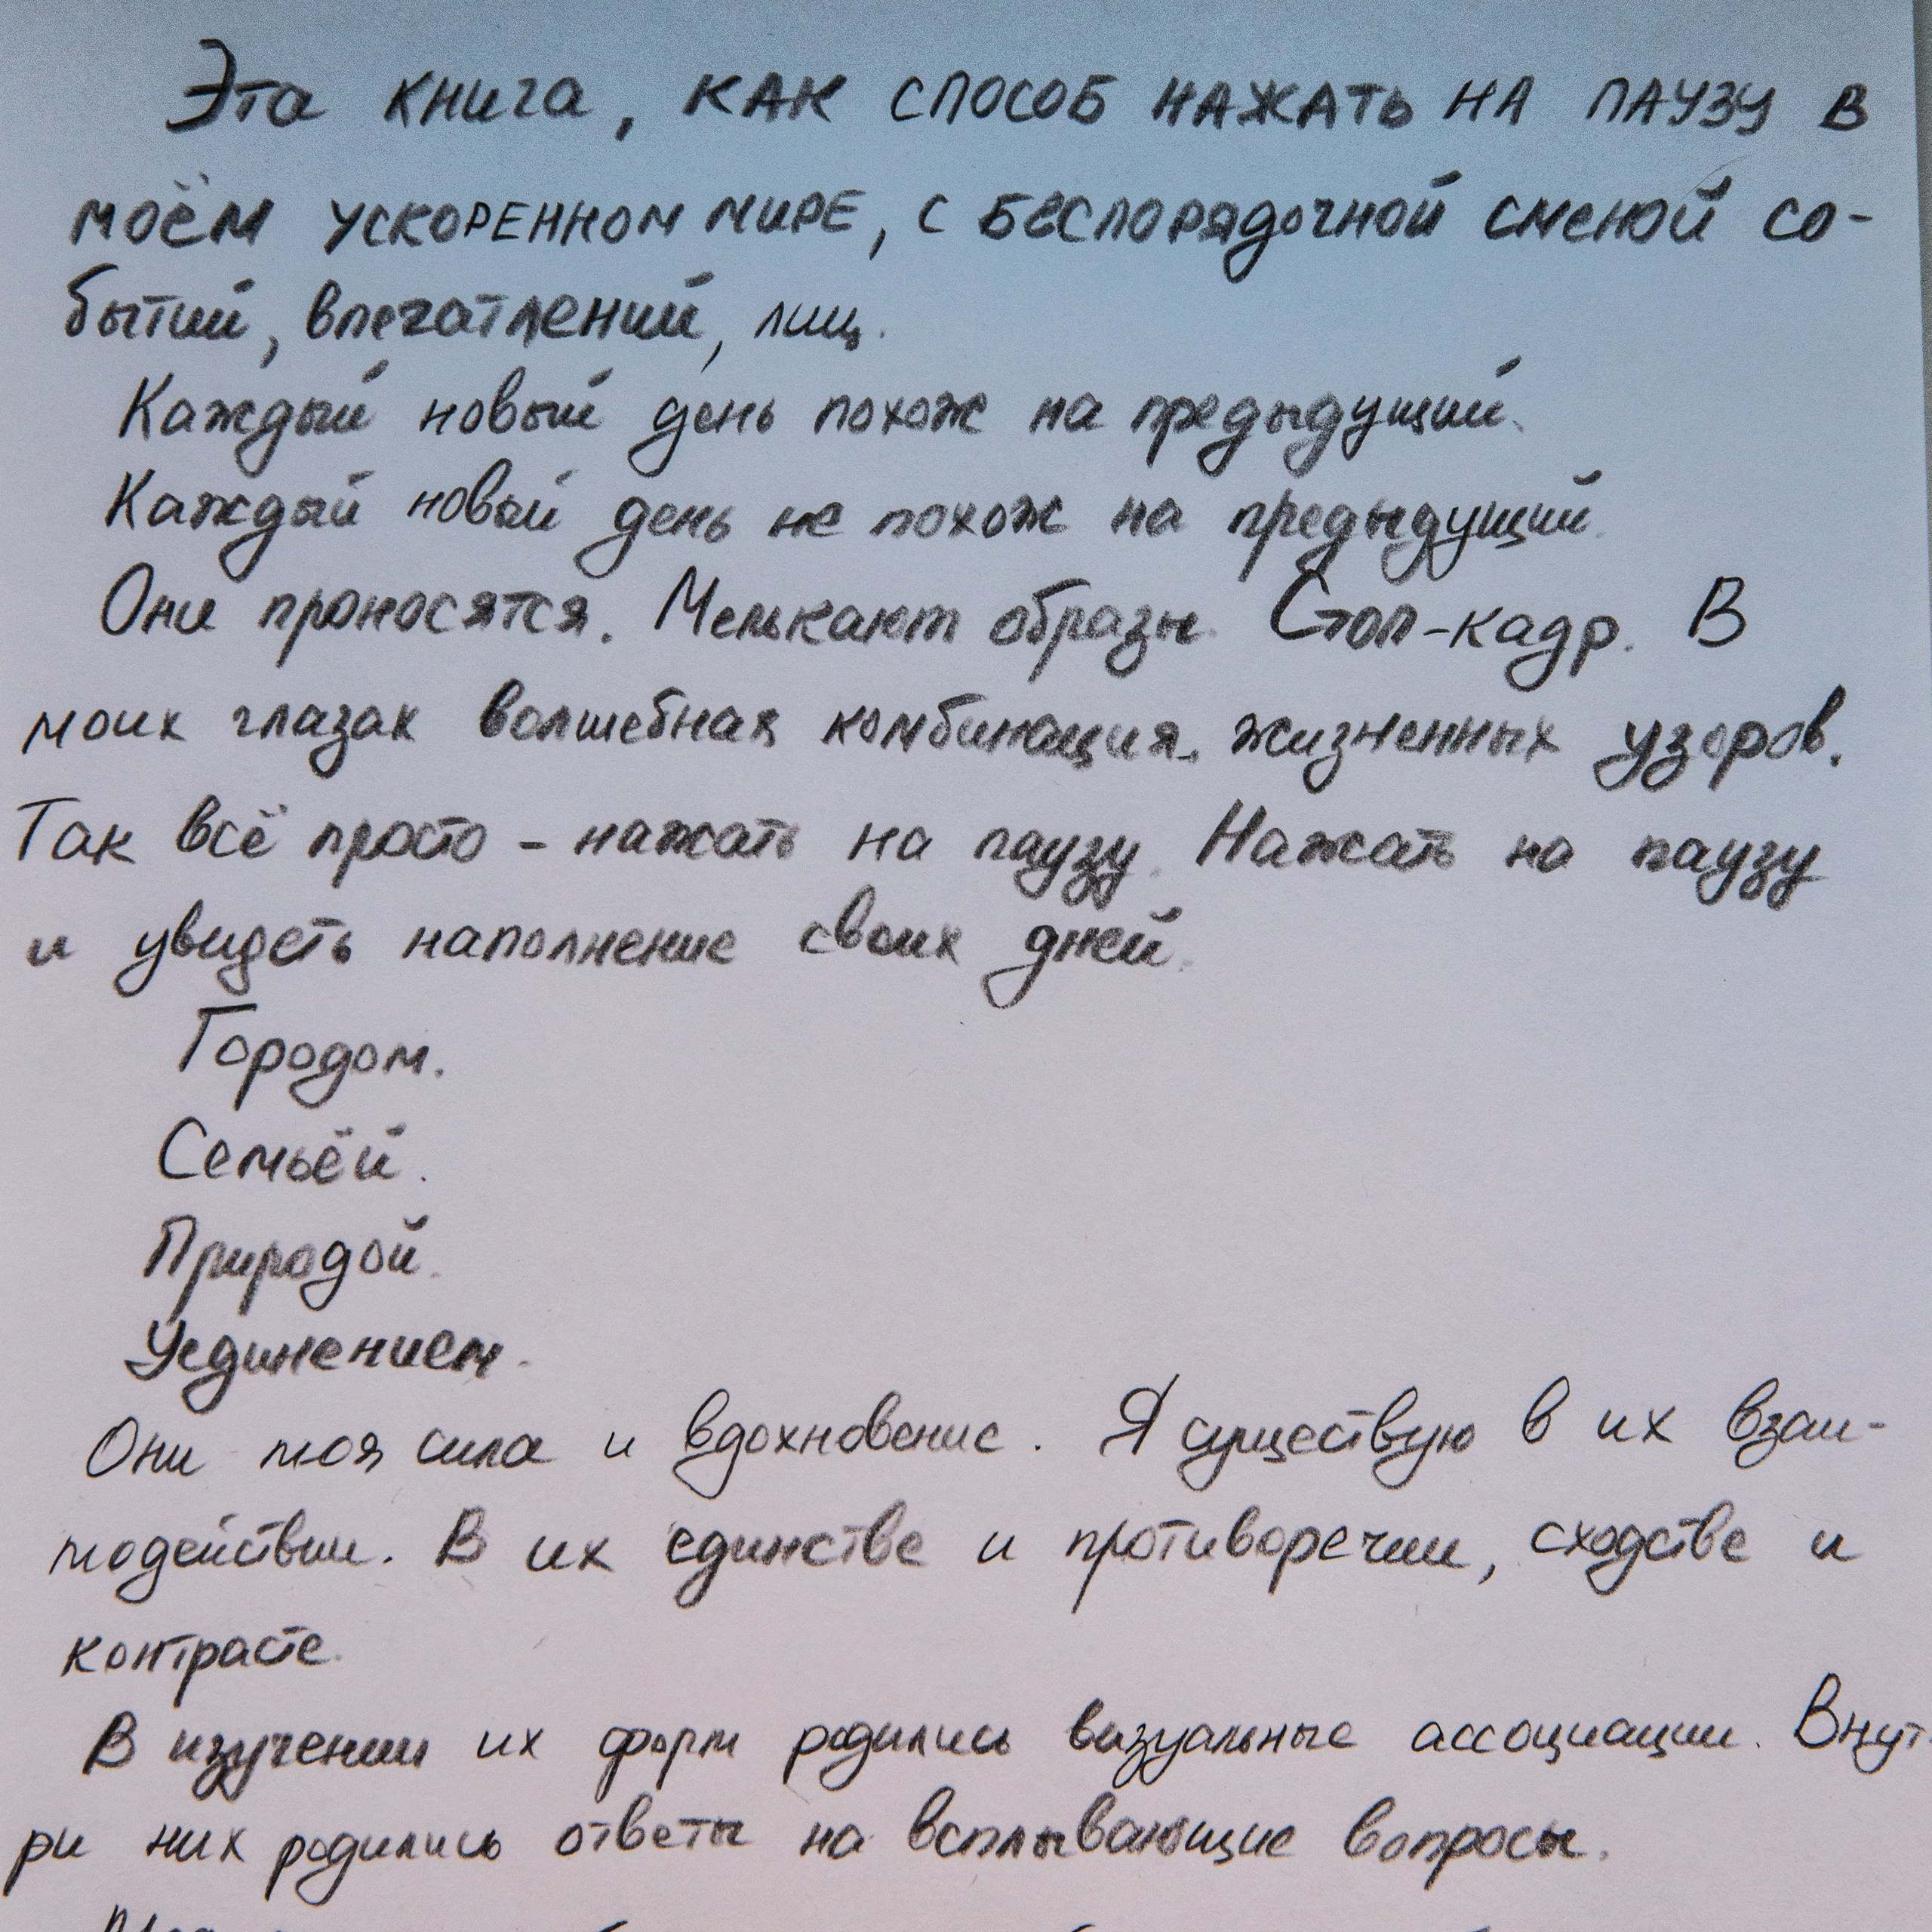 Эта книга, КАК СПОСОБ НАЖАТЬ НА ПАУЗУ В
МОЁМ УСКОРЕННОМ МИРЕ, С БЕСПОРЯДОЧНОЙ СМЕНОЙ СО-
бытий, впечатлений, лиц.
Каждый новый день похож на предыдущий.
Каждый новый день не похож на предыдущий.
Они проносятся. Мелькают образы. Стоп-кадр. В
моих глазах волшебная комбинация жизненных узоров.
Так всё просто - нажать на паузу. Нажать на паузу
и увидеть наполнение своих дней.
Городом.
Семьёй.
Природой.
Уединением.
Они моя сила и вдохновение. Я существую в их взаи-
модействии. В их единстве и противоречии, сходстве и
контрасте.
В изучении их форм родились визуальные ассоциации. Внут-
ри них родились ответы на всплывающие вопросы.